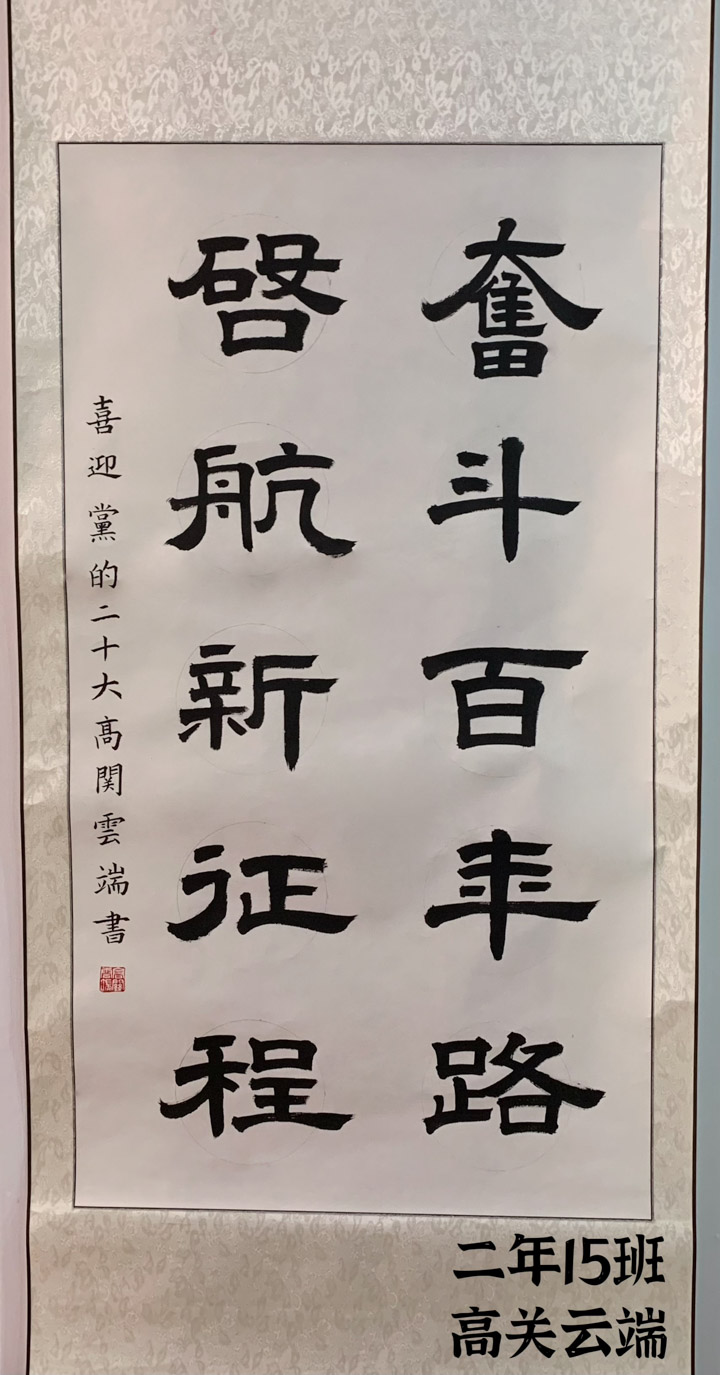 奮斗百年路
啓航新征程
喜迎黨的二十大高関雲端書
二年15班
高关云端